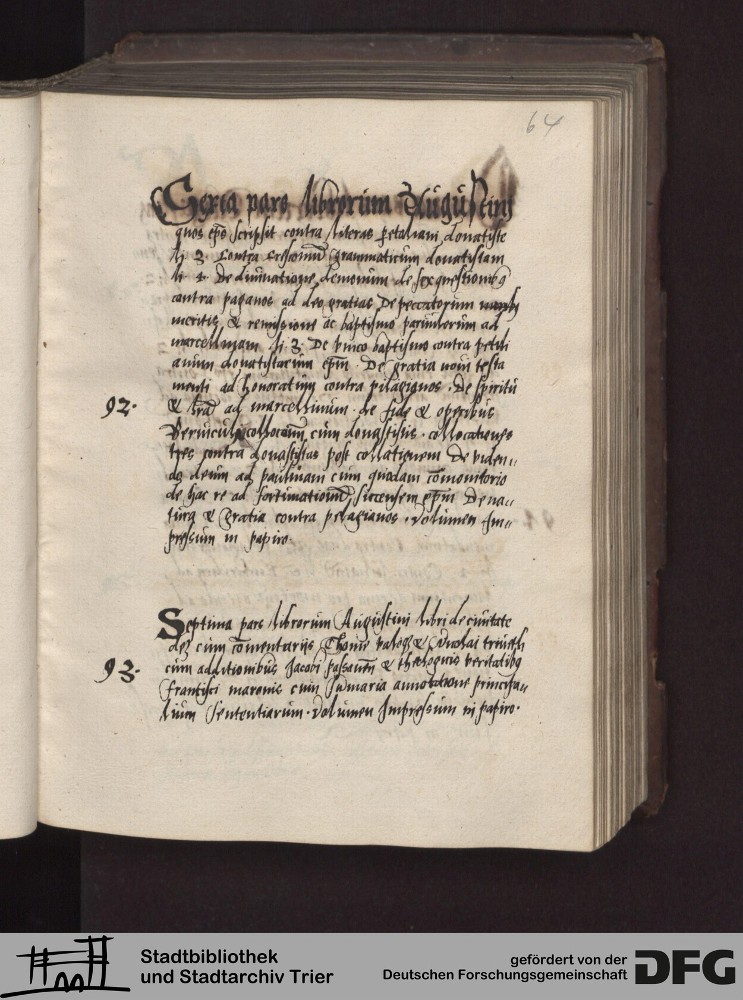 64
Sexta pars librorum Augustini
quos eps scripsit contra literas petiliani donatiste
li 3. contra cresconiu grammaticum donatistam
li 4 De diuinatione demonum de sex questionibg
contra paganos ad deo gratias De peccatorum
meritis & remissione ac baptismo paruulorum ad
marcellinum li 3. De vnico baptismo contra petili
anum donatistarum epm. De gratia noui testa
menti ad honoratum contra pelagianos. De spiritu
92. & lra ad marcellinum. de fide & operibus
Breuiculus collationum cum donatistis. collationes
tres contra donatistas post collationem De viden„
do deum ad paulinam cum quodam comonitorio
de hac re ad fortunationu siccensem epm De na„
tura & gratia contra pelagianos. volumen Im„
pressum in papiro.
Septima pars librorum Augustini libri de ciuitate
dej cum comentarijs Thome valoys & Nicolai triueth
93. cum additionibus Jacobi passauen & theologicis veritatibg
francisci maronis cum Sumaria annotatione principa„
lium Sententiarum. volumen Impressum in papiro.
Stadtbibliothek
und Stadtarchiv Trier
gefördert von der
Deutschen Forschungsgemeinschaft
DFG